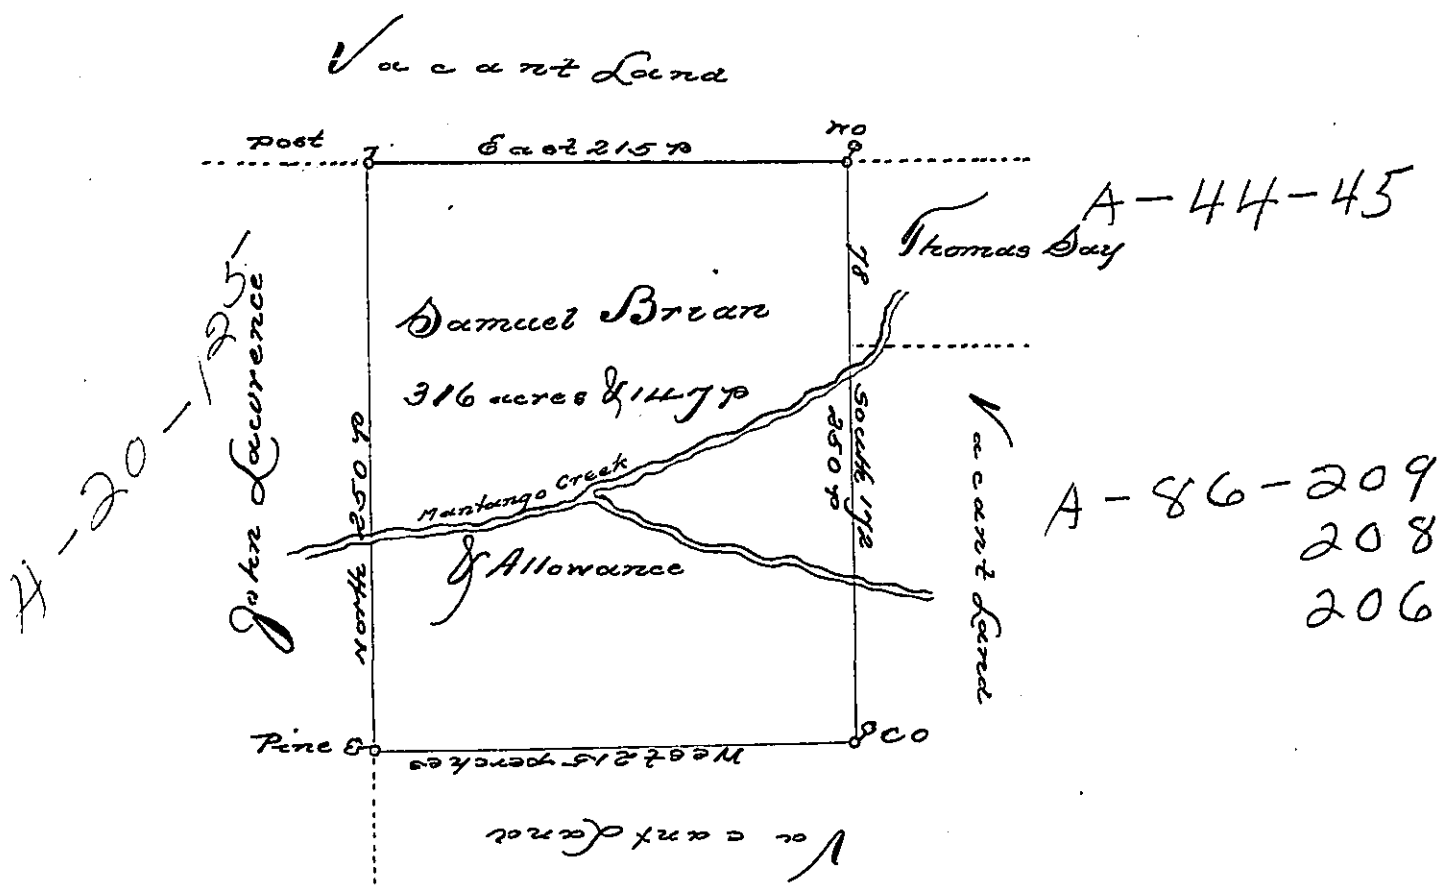 Vacant Land
post
East 215 p
WO
A-44-45
Thomas Say
78
H-20-125
John Lawrence
Samuel Brian
316 acres & 147 p
North 250 p
South 172
250 p
Vacant Land
Mantango Creek
& Allowance
A-86-209
208
206
Pine
West 215 perches
CO
Vacant Land